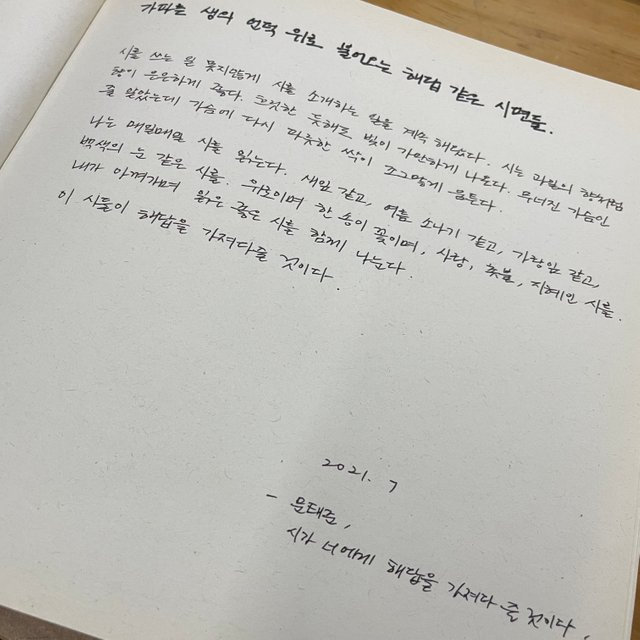 가파른 생의 언덕 위로 불어오는 해답 같은 시편들.
시를 쓰는 일 못지않게 시를 소개하는 일을 계속 해왔다. 시는 과일의 향처럼
많이 은은하게 좋다. 그윽한 듯해도 빛이 가만하게 나온다. 무너진 가슴인
줄 알았는데 가슴에 다시 따뜻한 싹이 조그맣게 움튼다.
나는 매일매일 시를 읽는다. 새잎 같고, 여름 소나기 같고, 가랑잎 같고,
백색의 눈 같은 시를. 위로이며 한 송이 꽃이며, 사랑, 촛불, 지혜인 시를.
내가 아껴가며 읽은 좋은 시를 함께 나눈다.
이 시들이 해답을 가져다줄 것이다.
2021. 7
- 문태준,
시가 너에게 해답을 가져다 줄 것이다.